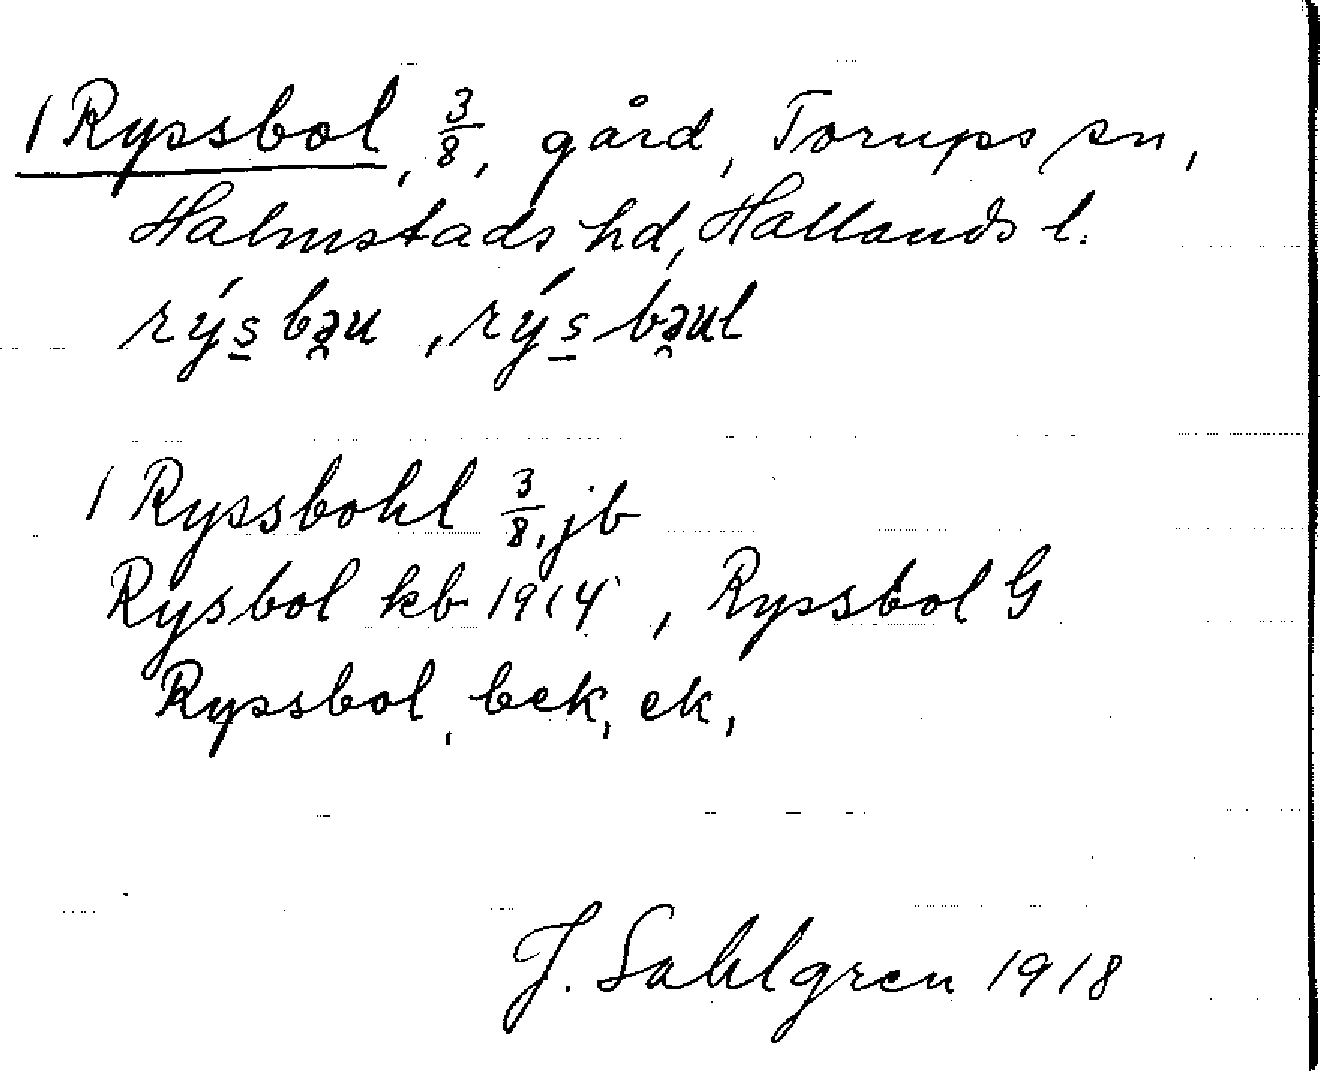 1 Ryssbol, 3/8, gård, Torups sn,
Halmstads hd, Hallands l.
rýs̲ bə̯u , rýs̲ bə̯ul
1 Ryssbohl 3/8, jb
Rysbol kb 1914 , Ryssbol G
Ryssbol, bek, ek,
J. Sahlgren 1918